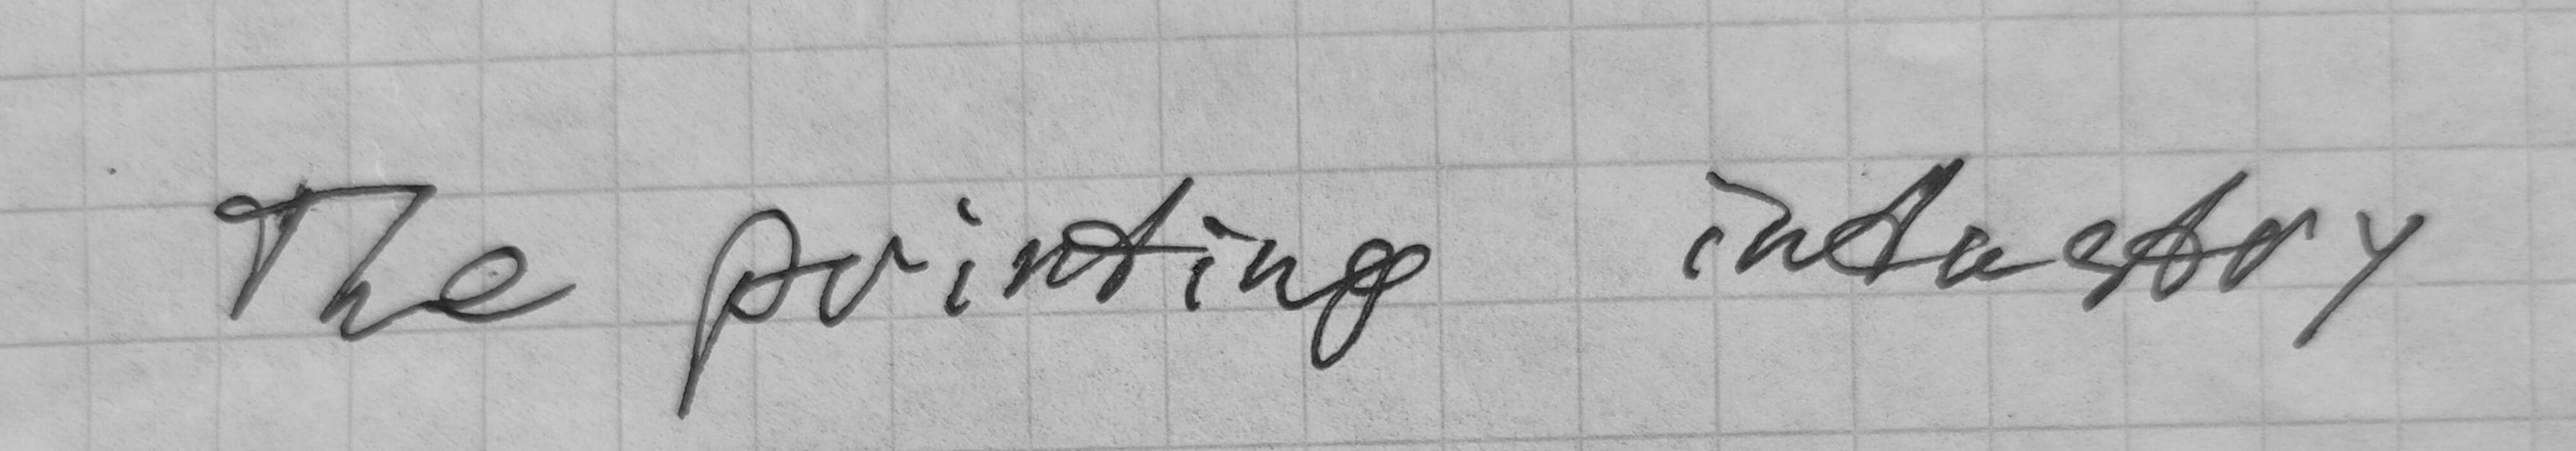 The printing industry